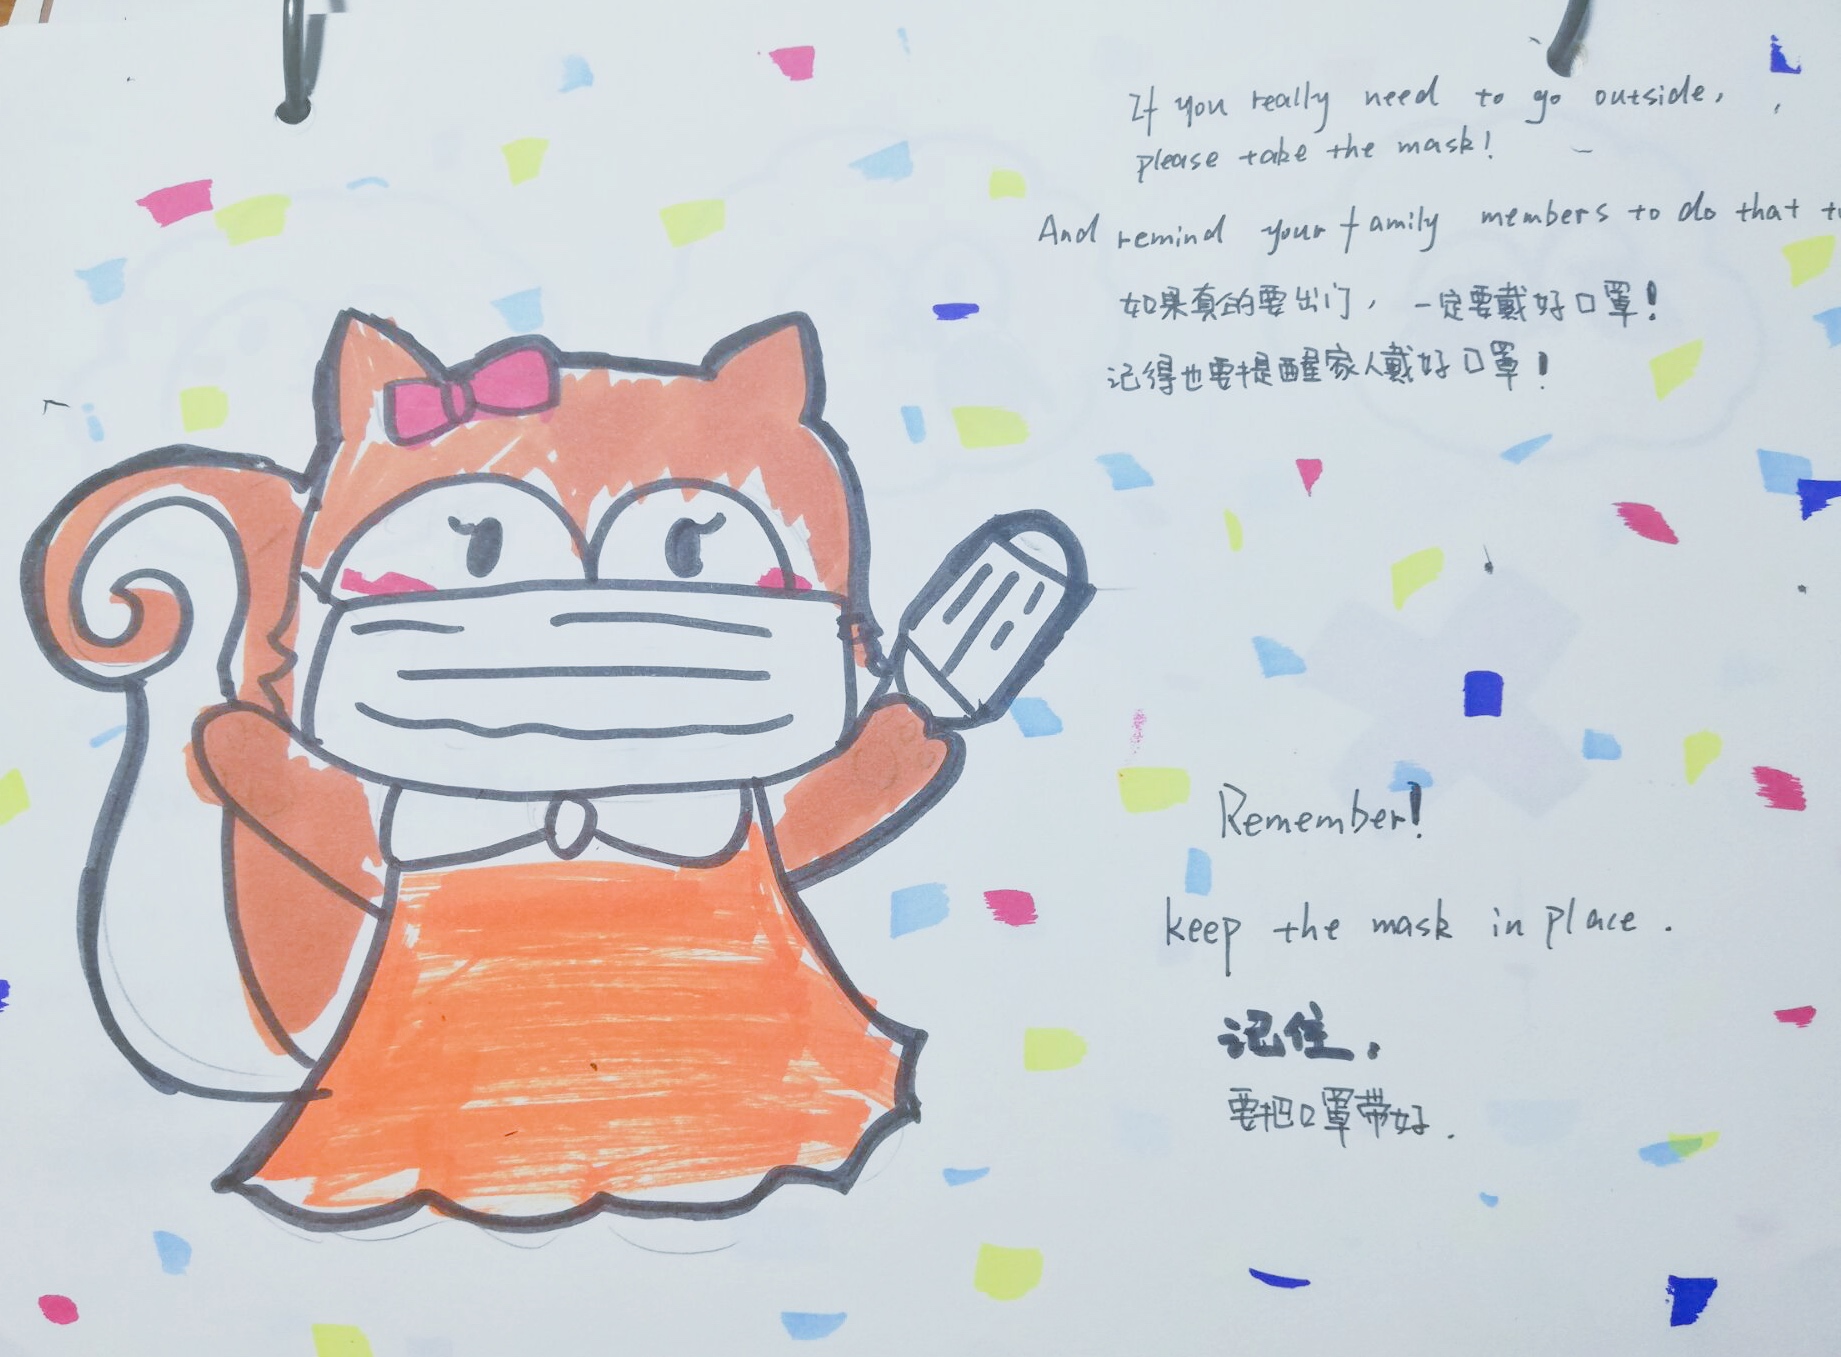 If you really need to go outside,
please take the mask!
And remind your family members to do that
如果真的要出门，一定要戴好口罩！
记得也要提醒家人戴好口罩！
Remember!
keep the mask in place.
记住，
要把口罩带好.